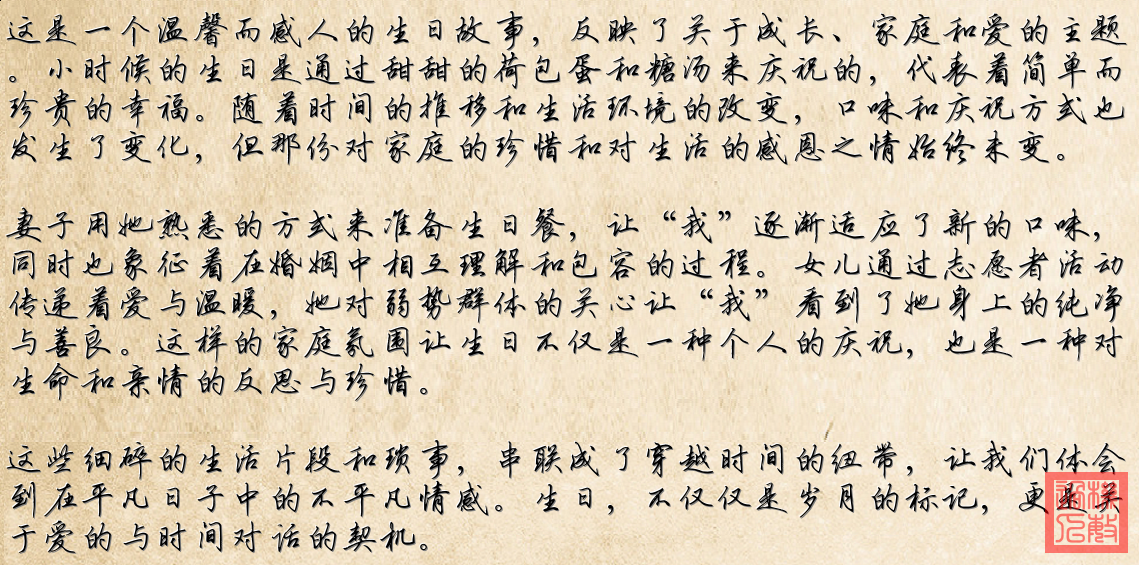 这是一个温馨而感人的生日故事，反映了关于成长、家庭和爱的主题
。小时候的生日是通过甜甜的荷包蛋和糖汤来庆祝的，代表着简单而
珍贵的幸福。随着时间的推移和生活环境的改变，口味和庆祝方式也
发生了变化，但那份对家庭的珍惜和对生活的感恩之情始终未变。
妻子用她熟悉的方式来准备生日餐，让“我”逐渐适应了新的口味，
同时也象征着在婚姻中相互理解和包容的过程。女儿通过志愿者活动
传递着爱与温暖，她对弱势群体的关心让“我”看到了她身上的纯净
与善良。这样的家庭氛围让生日不仅是一种个人的庆祝，也是一种对
生命和亲情的反思与珍惜。
这些细碎的生活片段和琐事，串联成了穿越时间的纽带，让我们体会
到在平凡日子中的不平凡情感。生日，不仅仅是岁月的标记，更是关
于爱的与时间对话的契机。